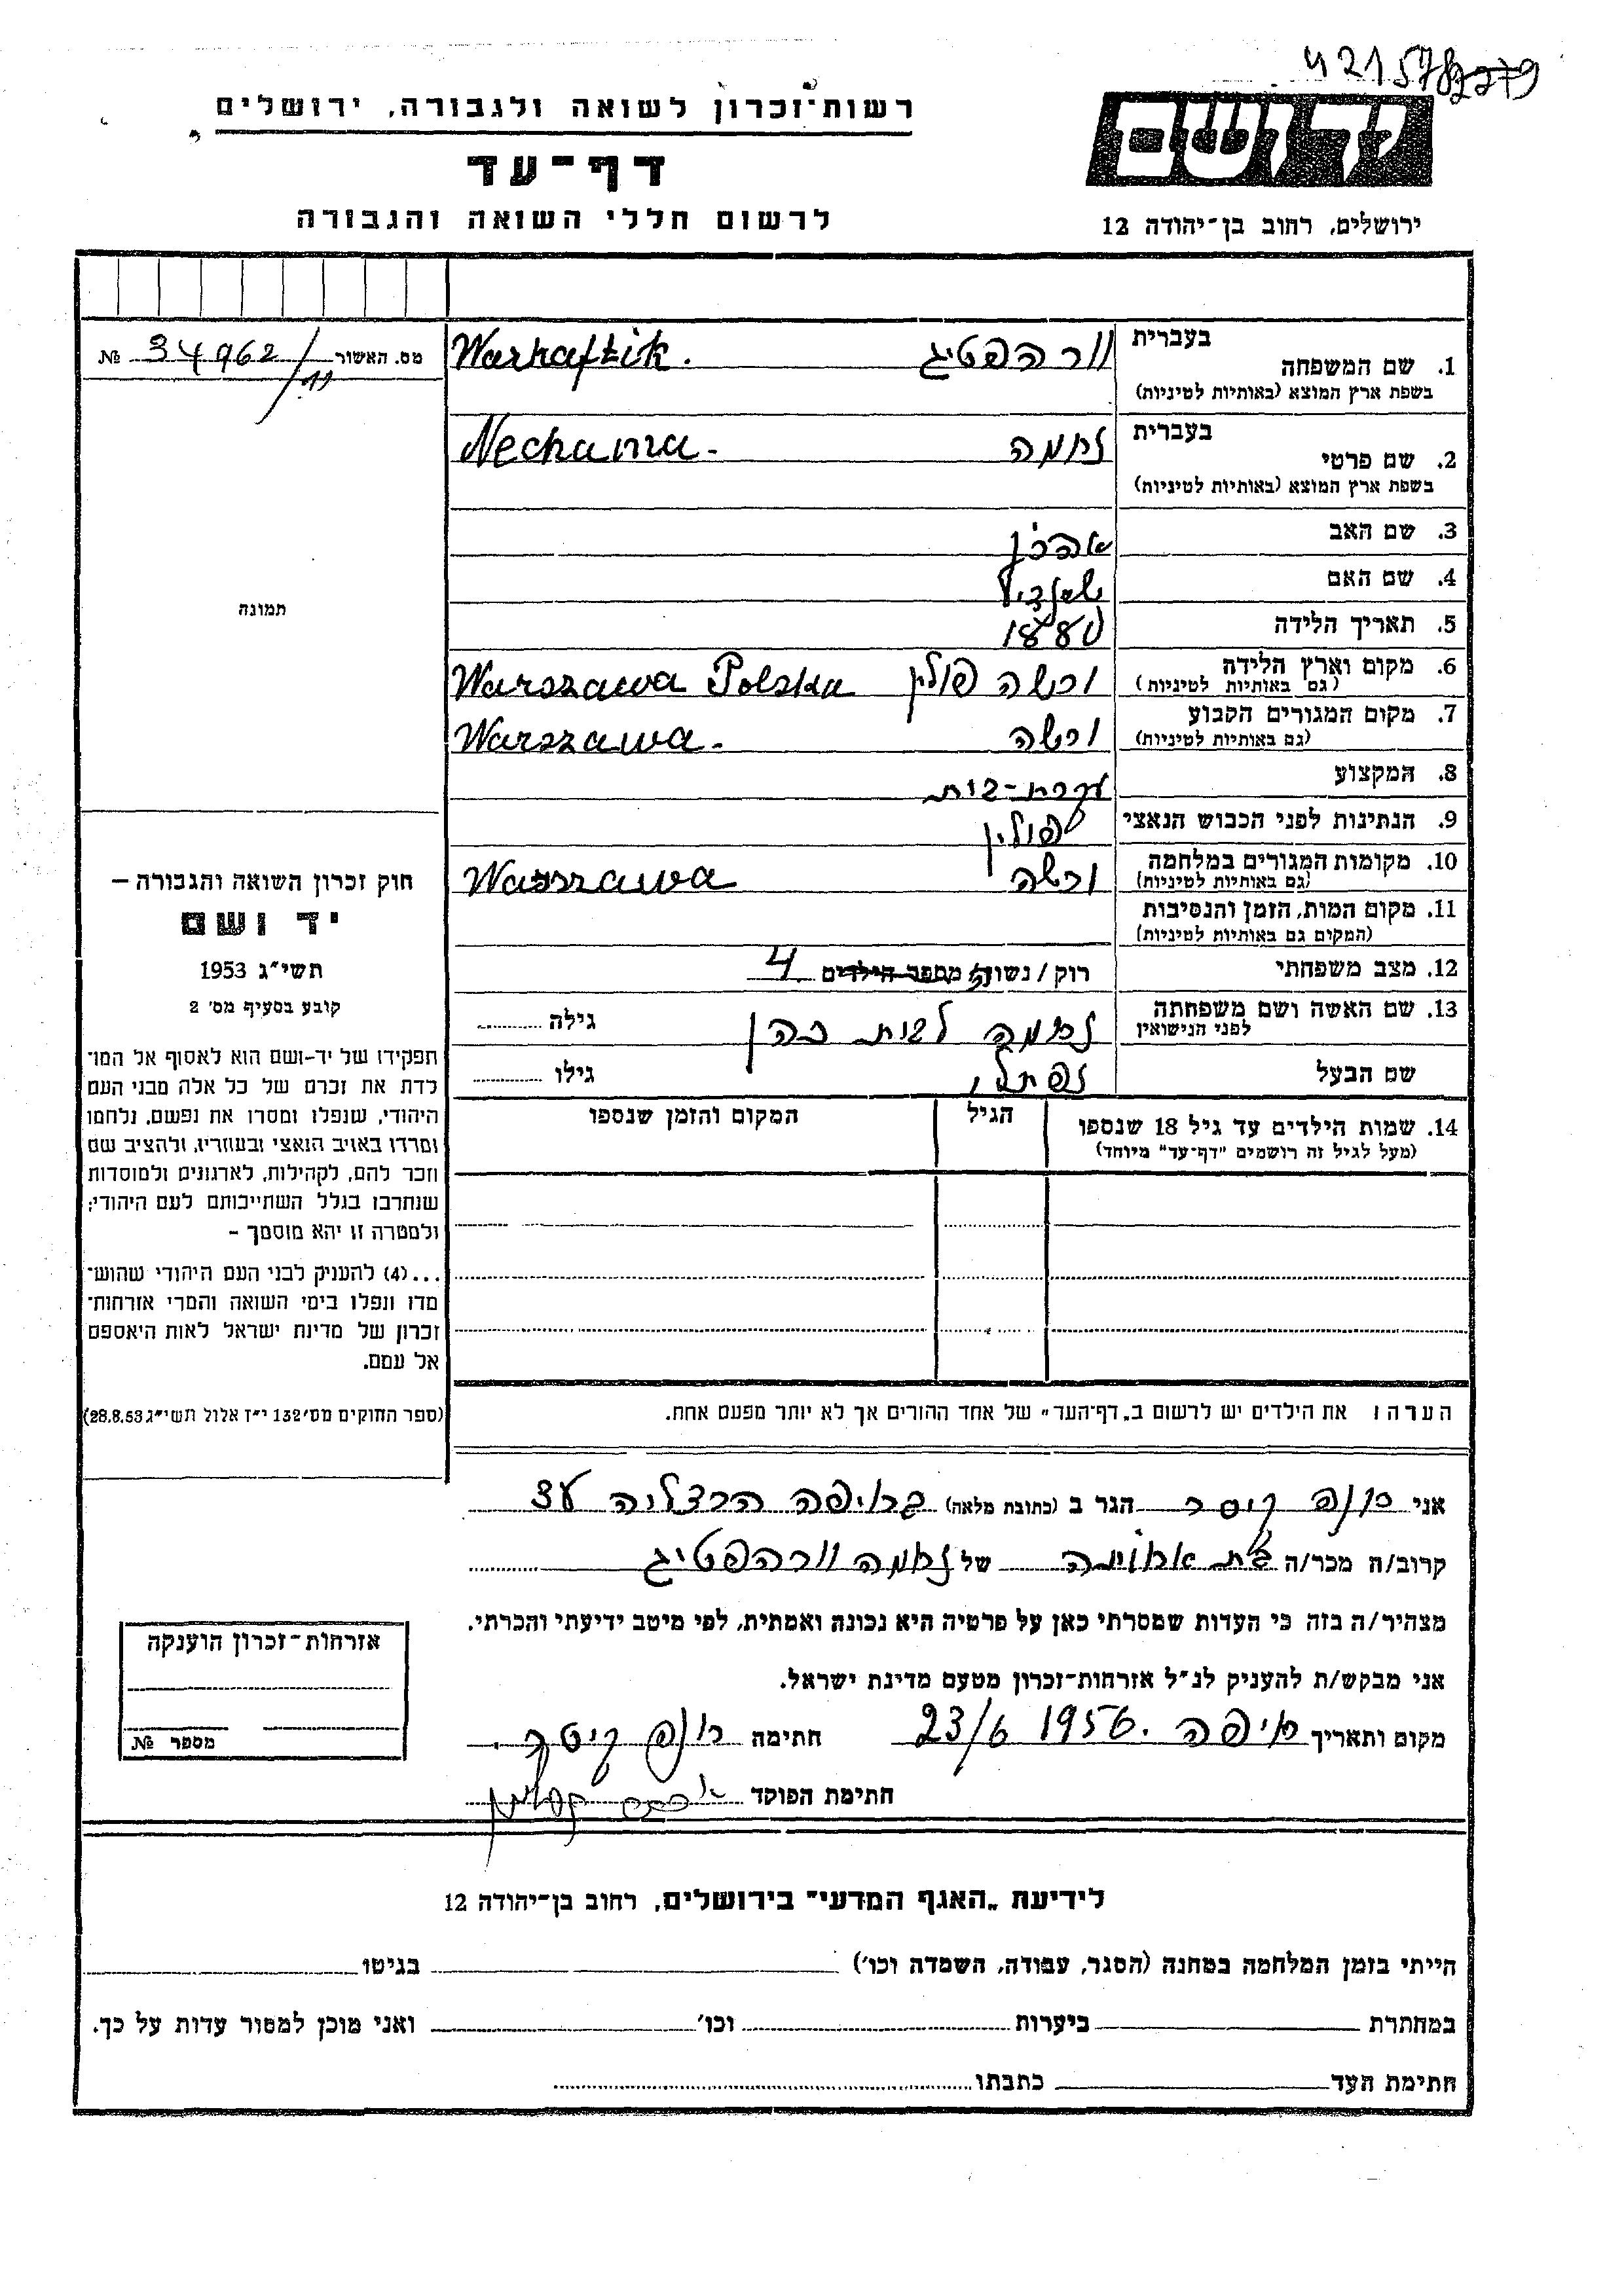 421578
רשות־זכרון לשואה ולגבורה, ירושלים
דף־עד
לרשום חללי השואה והגבורה
ידושם
ירושלים, רחוב בן־יהודה 12
מס. האשור 34962/ №
תמונה
חוק זכרון השואה והגבורה –
יד ושם
תשי״ג 1953
קובע בסעיף מס׳ 2
תפקידו של יד-ושם הוא לאסוף אל המו־
לדת את זכרם של כל אלה מבני העם
היהודי, שנפלו ומסרו את נפשם, נלחמו
ומרדו באויב הנאצי ובעוזריו, ולהציב שם
וזכר להם, לקהילות, לארגונים ולמוסדות
שנחרבו בגלל השתייכותם לעם היהודי;
ולמטרה זו יהא מוסמך –
...(4) להעניק לבני העם היהודי שהוש־
מדו ונפלו בימי השואה והמרי אזרחות־
זכרון של מדינת ישראל לאות היאספם
אל עמם.
(ספר החוקים מס׳ 132 י״ז אלול תשי״ג 28.8.53)
בעברית
1. שם המשפחה וורהפטיג Warhaftik.
בשפת ארץ המוצא (באותיות לטיניות)
בעברית
2. שם פרטי נחמה Nechama-
בשפת ארץ המוצא (באותיות לטיניות)
3. שם האב אהרן
4. שם האם
5. תאריך הלידה 1880
6. מקום וארץ הלידה ורשה פולין Warszawa Polska
(גם באותיות לטיניות)
7. מקום המגורים הקבוע ורשה Warszawa.
(גם באותיות לטיניות)
8. המקצוע עקרת-בית
9. הנתינות לפני הכבוש הנאצי פולין
10. מקומות המגורים במלחמה ורשה Warszawa
(גם באותיות לטיניות)
11. מקום המות, הזמן והנסיבות
(המקום גם באותיות לטיניות)
12. מצב משפחתי רוק/נשוי/ה מספר הילדים 4
13. שם האשה ושם משפחתה נחמה לבית כהן גילה
לפני הנישואין
שם הבעל נפתלי גילו
14. שמות הילדים עד גיל 18 שנספו הגיל המקום והזמן שנספו
(מעל לגיל זה רושמים "דף־עד" מיוחד)
הערה: את הילדים יש לרשום ב„דף־העד" של אחד ההורים אך לא יותר מפעם אחת.
אני קיסר הגר ב (כתובת מלאה) בחיפה הרצליה
קרוב/ה מכר/ה בת אחותה של נחמה וורהפטיג
מצהיר/ה בזה כי העדות שמסרתי כאן על פרטיה היא נכונה ואמתית, לפי מיטב ידיעתי והכרתי.
אני מבקש/ת להעניק לנ״ל אזרחות־זכרון מטעם מדינת ישראל.
מקום ותאריך חיפה 23/6 1956. חתימה
חתימת הפוקד
אזרחות־זכרון הוענקה
מספר №
לידיעת „האגף המדעי" בירושלים, רחוב בן־יהודה 12
הייתי בזמן המלחמה במחנה (הסגר, עבודה, השמדה וכו׳) בגיטו
במחתרת ביערות וכו׳ ואני מוכן למסור עדות על כך.
חתימת העד כתבתו